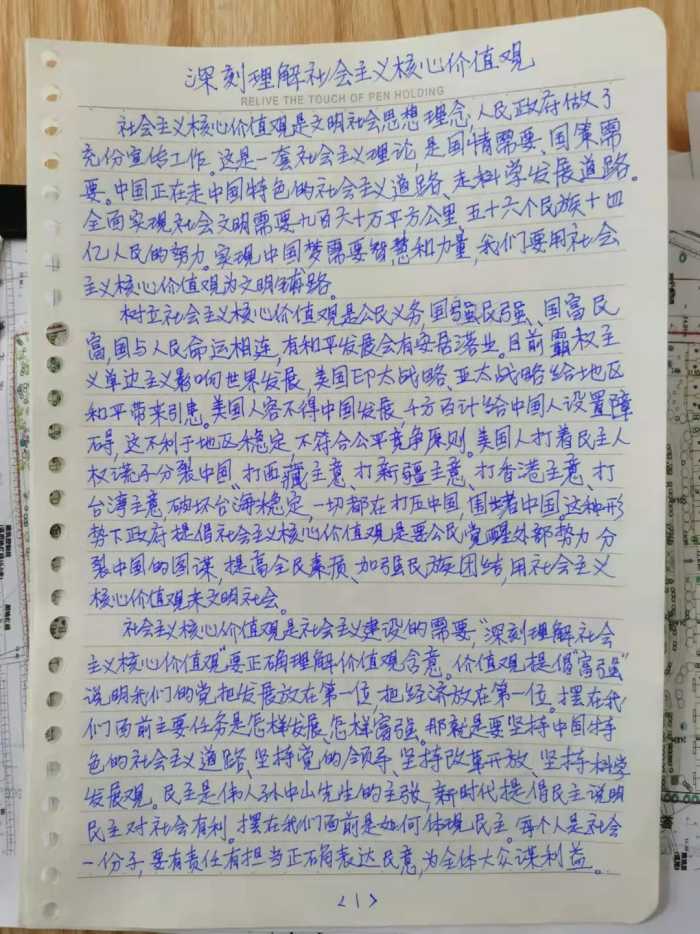 深刻理解社会主义核心价值观
RELIVE THE TOUCH OF PEN HOLDING
社会主义核心价值观是文明社会思想理念,人民政府做了
充份宣传工作。这是一套社会主义理论,是国情需要、国策需
要。中国正在走中国特色的社会主义道路、走科学发展道路。
全面实现社会文明需要九百六十万平方公里、五十六个民族十四
亿人民的努力。实现中国梦需要智慧和力量,我们要用社会
主义核心价值观为文明铺路。
树立社会主义核心价值观是公民义务,国强民强、国富民
富,国与人民命运相连,有和平发展会有安居落业。目前霸权主
义单边主义影响世界发展,美国印太战略、亚太战略给地区
和平带来引患。美国人容不得中国发展,千方百计给中国人设置障
碍,这不利于地区稳定,不符合公平竞争原则。美国人打着民主人
权谎子分裂中国、打西藏主意、打新疆主意、打香港主意、打
台湾主意,破坏台海稳定,一切都在打压中国,围堵中国。这种形
势下政府提倡社会主义核心价值观是要公民觉醒外部势力分
裂中国的图谋,提高全民素质、加强民族团结,用社会主义
核心价值观来文明社会。
社会主义核心价值观是社会主义建设的需要,"深刻理解社会
主义核心价值观"要正确理解价值观含意。价值观提倡"富强"
说明我们的党把发展放在第一位,把经济放在第一位。摆在我
们面前主要任务是怎样发展、怎样富强。那就是要坚持中国特
色的社会主义道路、坚持党的领导、坚持改革开放、坚持科学
发展观。民主是伟人孙中山先生的主张,新时代提倡民主说明
民主对社会有利。摆在我们面前是如何体现民主。每个人是社会
一份子,要有责任有担当正确表达民意,为全体大众谋利益。
<1>